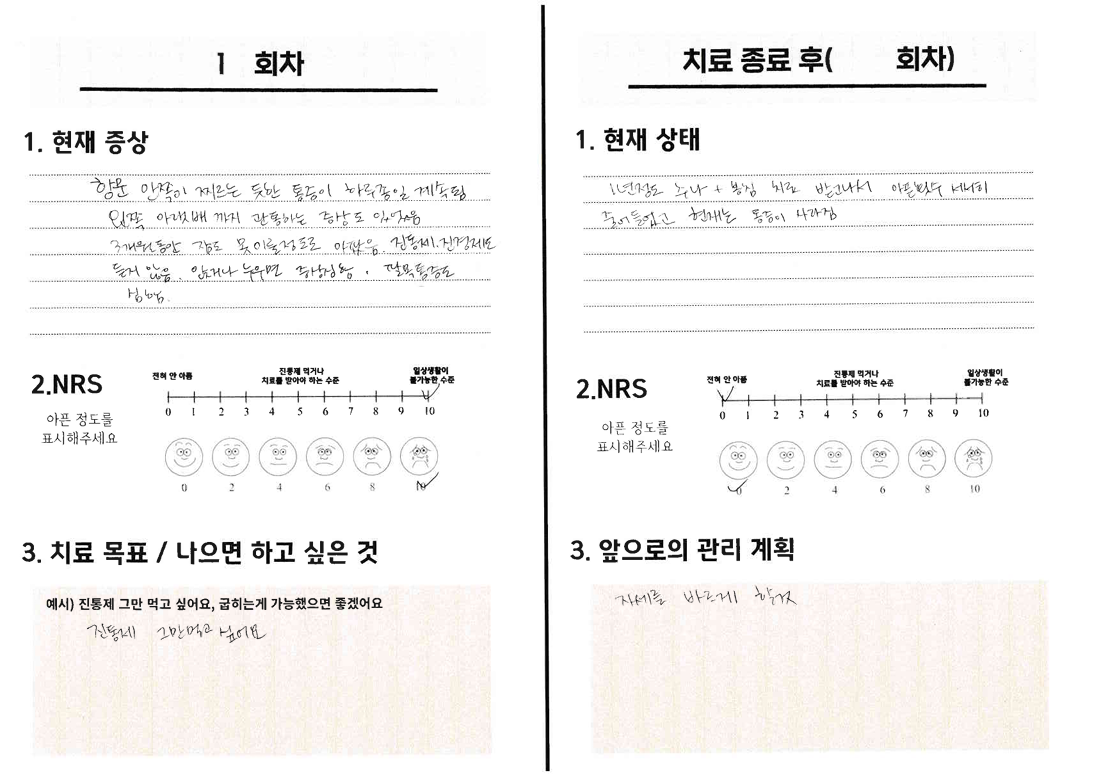 1 회차
1. 현재 증상
항문 안쪽이 찌르는 듯한 통증이 하루종일 계속됨
아랫배 까지 관통하는 증상도 있었음
3개월동안 잠도 못이룰정도로 아팠음. 진통제.진정제도
듣지 않음. 앉거나 누우면
심해짐.
2.NRS
아픈 정도를
표시해주세요
전혀 안 아픔
진통제 먹거나
치료를 받아야 하는 수준
일상생활이
불가능한 수준
0 1 2 3 4 5 6 7 8 9 10
0 2 4 6 8 10
3. 치료 목표 / 나으면 하고 싶은 것
예시) 진통제 그만 먹고 싶어요, 굽히는게 가능했으면 좋겠어요
진통제 그만먹고 싶어요
치료 종료 후( 회차)
1. 현재 상태
1년정도 추나 + 봉침 치료 받고나서 아픈횟수 서서히
줄어들었고 현재는 통증이 사라짐
2.NRS
아픈 정도를
표시해주세요
전혀 안 아픔
진통제 먹거나
치료를 받아야 하는 수준
일상생활이
불가능한 수준
0 1 2 3 4 5 6 7 8 9 10
0 2 4 6 8 10
3. 앞으로의 관리 계획
자세를 바르게 할것